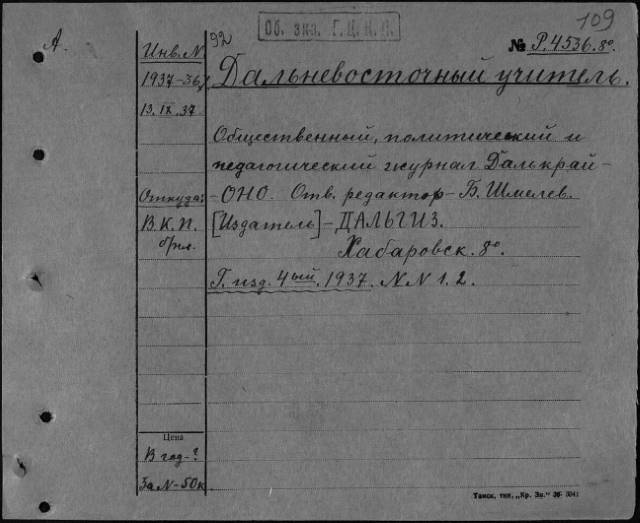 109
Об. экз. Г.Ц.К.П.
А.
Инв. N
92
№ Р.4536.8º
1937-36
Дальневосточный учитель.
13.IX.37
Общественный, политический и
педагогический журнал Далькрай-
Откуда:
-ОНО. Отв. редактор - Б. Шмелев.
В.К.П.
[Издатель] - ДАЛЬГИЗ.
б/пл.
Хабаровск. 8º.
Г. изд. 4ый. 1937. NN 1.2.
Цена
В год-?
За N-50к.
Тамск. тип. „Кр. Зн." 36